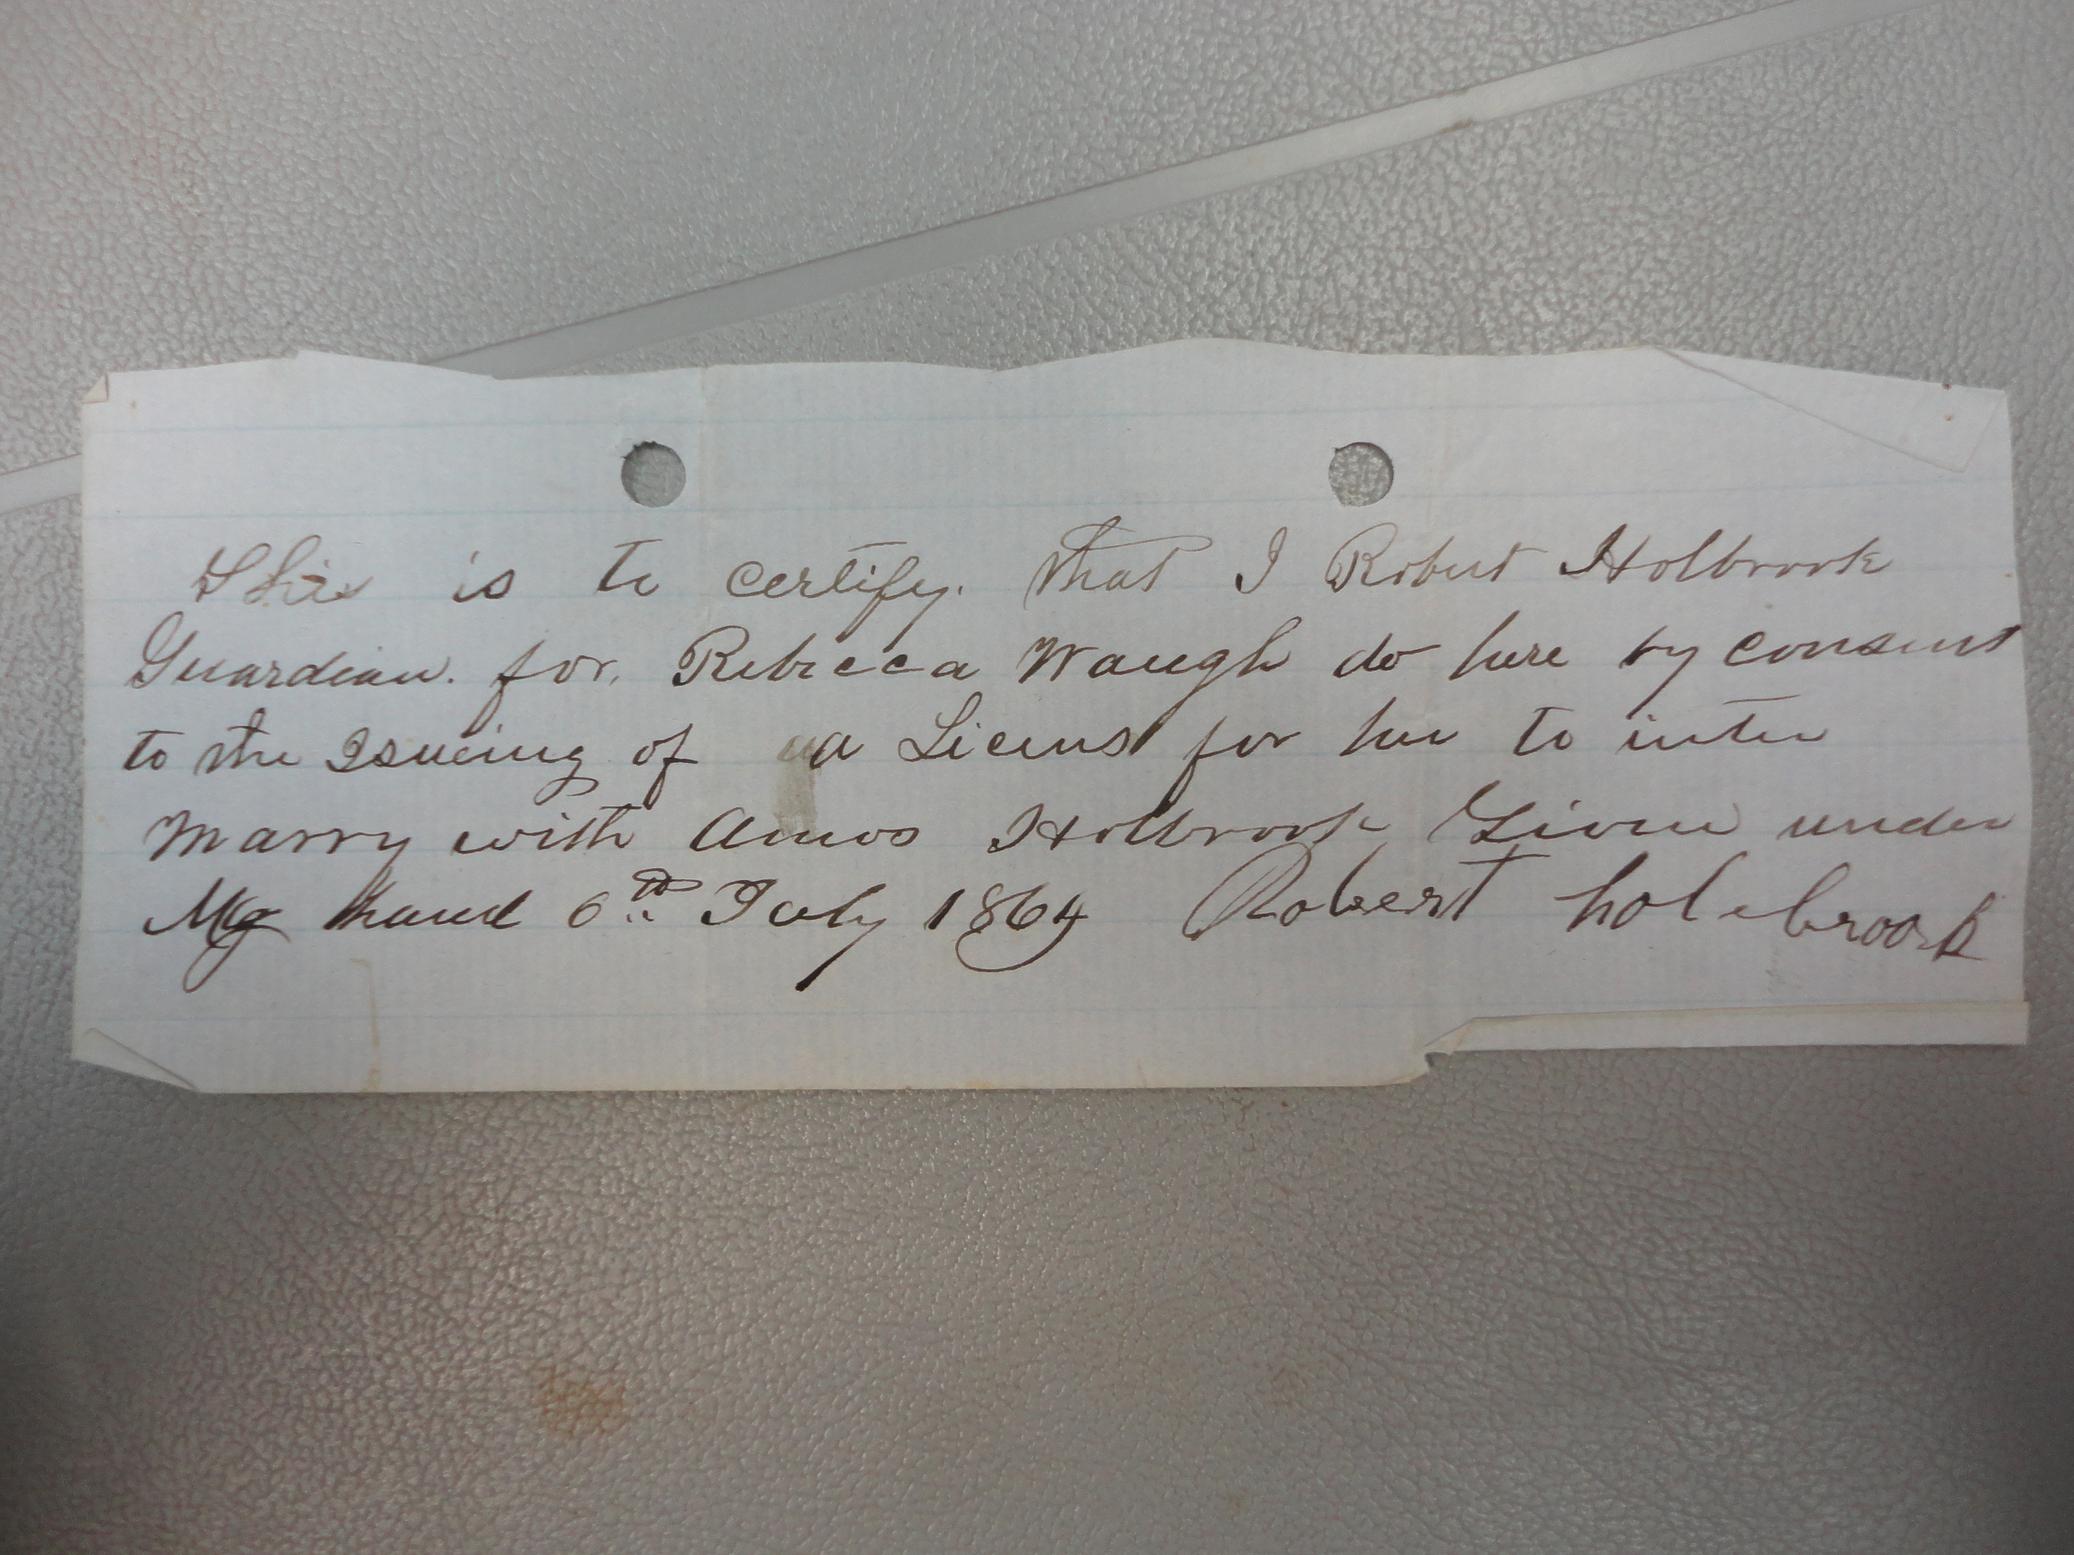 This is to certify. that I Robert Holbrook
Guardian. for. Rebecca Waugh do here by consent
to the Issueing of a Licens for her to inter
marry with Amos Holbrook Given under
My hand 6th July 1864 Robert holebrook